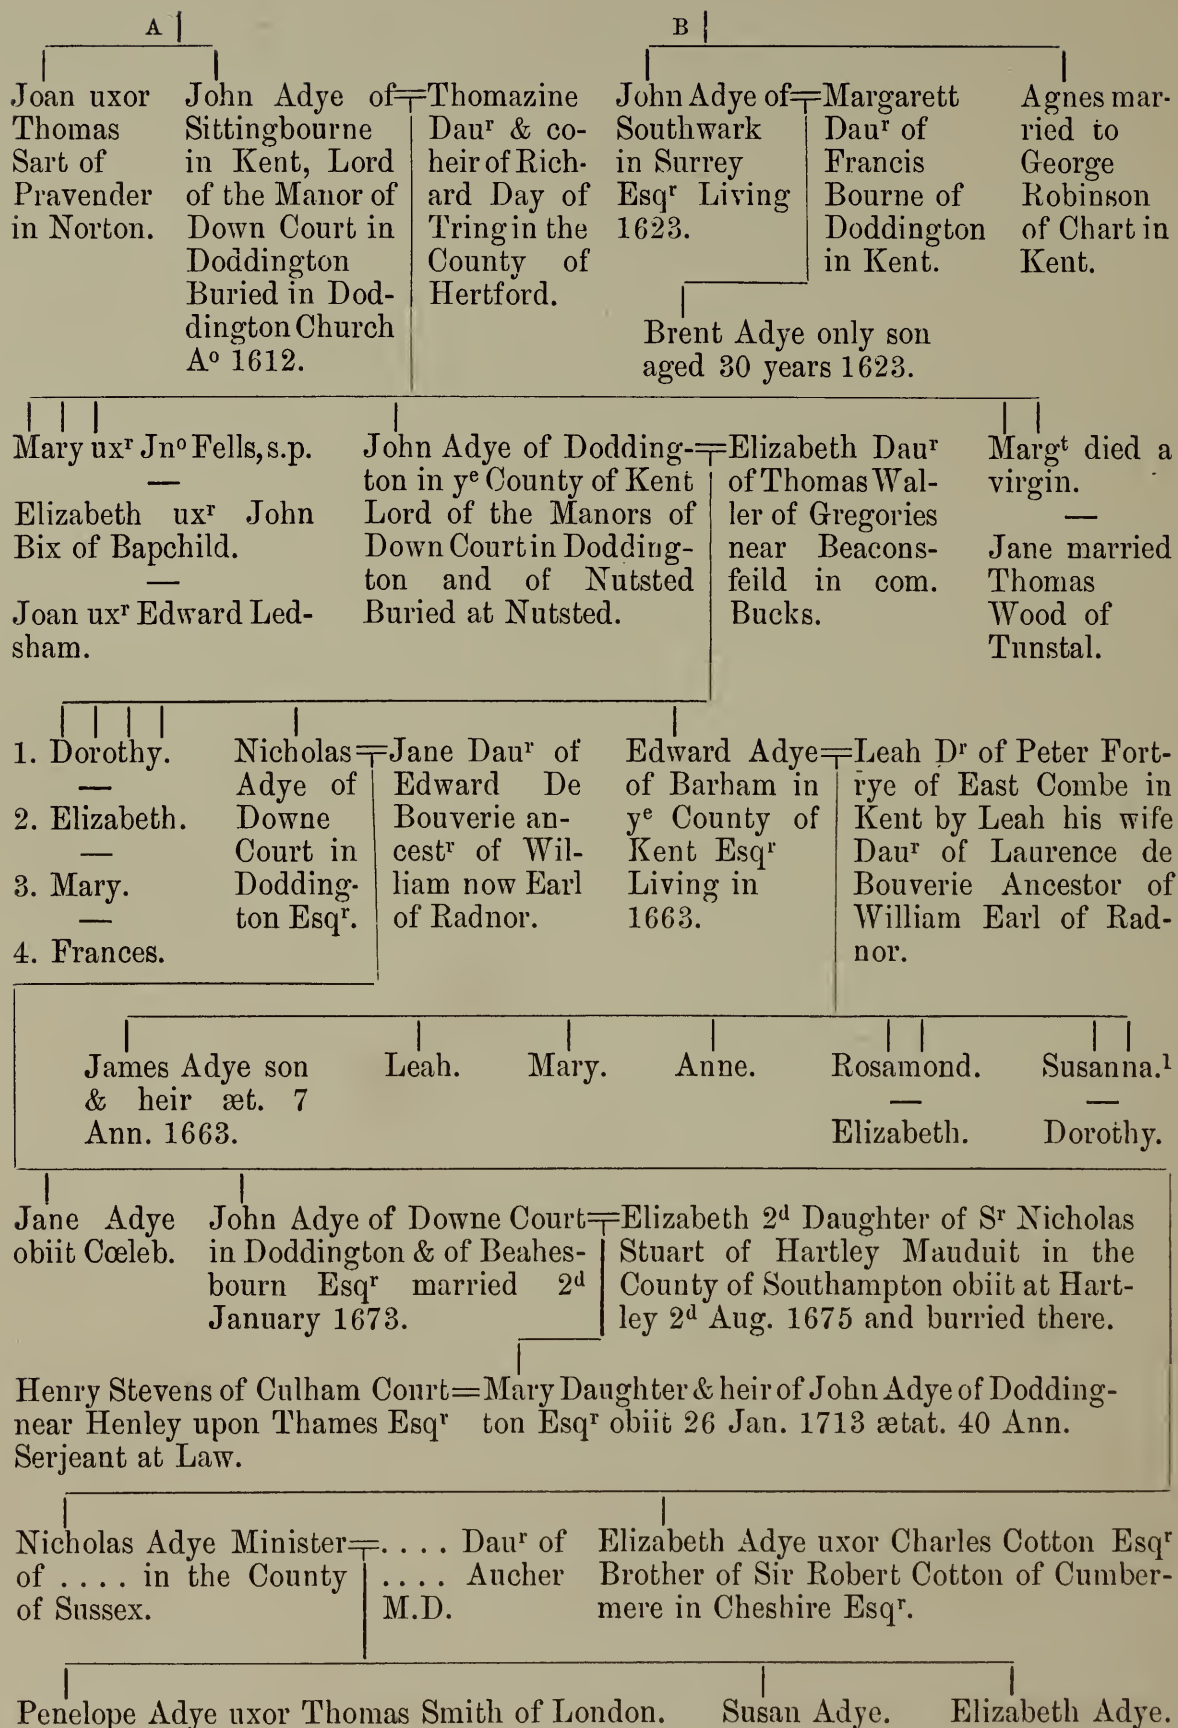 A
B
Joan uxor
Thomas
Sart of
Pravender
in Norton.
John Adye of
Sittingbourne
in Kent, Lord
of the Manor of
Down Court in
Doddington
Buried in Dod-
dington Church
Aº 1612.
Thomazine
Dauʳ & co-
heir of Rich-
ard Day of
Tring in the
County of
Hertford.
John Adye of
Southwark
in Surrey
Esqʳ Living
1623.
Margarett
Dauʳ of
Francis
Bourne of
Doddington
in Kent.
Agnes mar-
ried to
George
Robinson
of Chart in
Kent.
Brent Adye only son
aged 30 years 1623.
Mary uxʳ Jnº Fells, s.p.
—
Elizabeth uxʳ John
Bix of Bapchild.
—
Joan uxʳ Edward Led-
sham.
John Adye of Dodding-
ton in yᵉ County of Kent
Lord of the Manors of
Down Court in Dodding-
ton and of Nutsted
Buried at Nutsted.
Elizabeth Dauʳ
of Thomas Wal-
ler of Gregories
near Beacons-
feild in com.
Bucks.
Margᵗ died a
virgin.
—
Jane married
Thomas
Wood of
Tunstal.
1. Dorothy.
—
2. Elizabeth.
—
3. Mary.
—
4. Frances.
Nicholas
Adye of
Downe
Court in
Dodding-
ton Esqʳ.
Jane Dauʳ of
Edward De
Bouverie an-
cestʳ of Wil-
liam now Earl
of Radnor.
Edward Adye
of Barham in
yᵉ County of
Kent Esqʳ
Living in
1663.
Leah Dʳ of Peter Fort-
rye of East Combe in
Kent by Leah his wife
Dauʳ of Laurence de
Bouverie Ancestor of
William Earl of Rad-
nor.
James Adye son
& heir æt. 7
Ann. 1663.
Leah.
Mary.
Anne.
Rosamond.
—
Elizabeth.
Susanna.¹
—
Dorothy.
Jane Adye
obiit Cœleb.
John Adye of Downe Court
in Doddington & of Beahes-
bourn Esqʳ married 2ᵈ
January 1673.
Elizabeth 2ᵈ Daughter of Sʳ Nicholas
Stuart of Hartley Mauduit in the
County of Southampton obiit at Hart-
ley 2ᵈ Aug. 1675 and burried there.
Henry Stevens of Culham Court=Mary Daughter & heir of John Adye of Dodding-
near Henley upon Thames Esqʳ ton Esqʳ obiit 26 Jan. 1713 ætat. 40 Ann.
Serjeant at Law.
Nicholas Adye Minister
of .... in the County
of Sussex.
.... Dauʳ of
.... Aucher
M.D.
Elizabeth Adye uxor Charles Cotton Esqʳ
Brother of Sir Robert Cotton of Cumber-
mere in Cheshire Esqʳ.
Penelope Adye uxor Thomas Smith of London.
Susan Adye.
Elizabeth Adye.